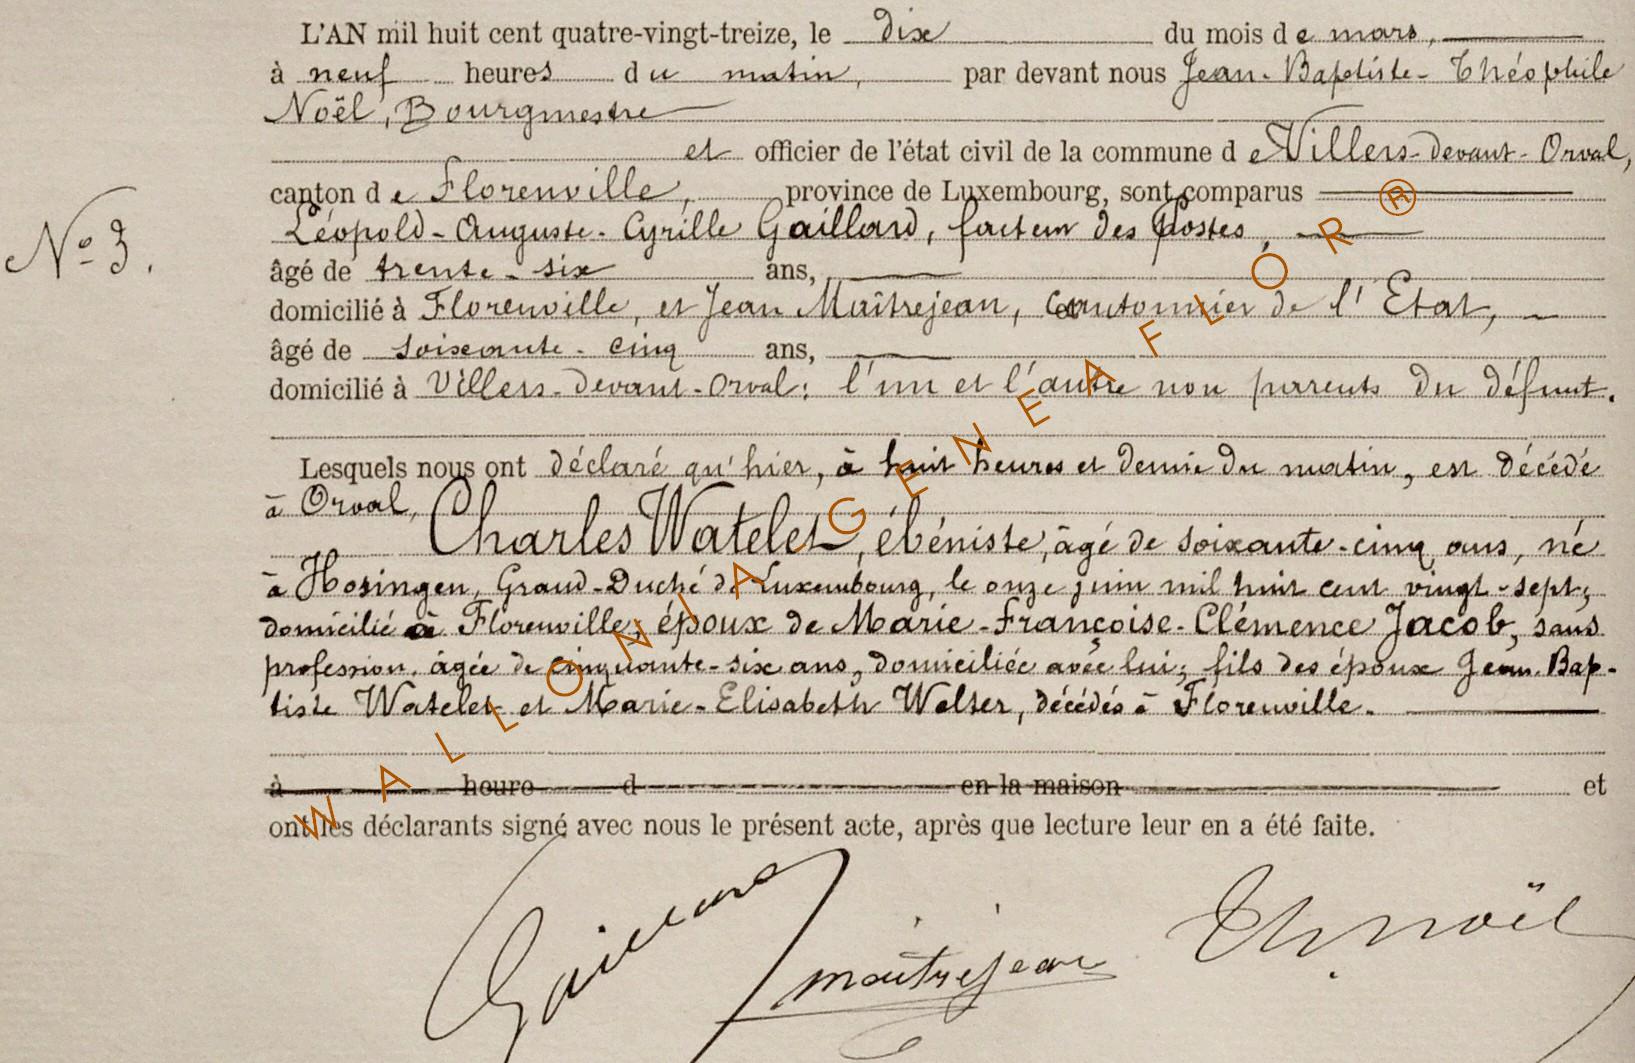 L'AN mil huit cent quatre-vingt-treize, le dix du mois de mars,
à neuf heures du matin, par devant nous Jean-Baptiste-Théophile
Noël, Bourgmestre
et officier de l'état civil de la commune de Villers-devant-Orval,
canton de Florenville, province de Luxembourg, sont comparus
Léopold-Auguste-Cyrille Gaillard, facteur des Postes,
N° 3.
âgé de trente-six ans,
domicilié à Florenville, et Jean Maîtrejean, cantonnier de l'Etat,
âgé de soixante-cinq ans,
domicilié à Villers-devant-Orval: l'un et l'autre non parents du défunt.
Lesquels nous ont déclaré qu'hier, à huit heures et demie du matin, est décédé
à Orval,
Charles Watelet, ébéniste, âgé de soixante-cinq ans, né
à Hosingen, Grand-Duché de Luxembourg, le onze juin mil huit cent vingt-sept;
domicilié à Florenville; époux de Marie-Françoise-Clémence Jacob, sans
profession, âgée de cinquante-six ans, domiciliée avec lui; fils des époux Jean-Bap-
tiste Watelet et Marie-Elisabeth Welter, décédés à Florenville.
à heure d en la maison et
ont les déclarants signé avec nous le présent acte, après que lecture leur en a été faite.
Gaillard
maîtrejean
Th. Noël
WALLONIA GENEAFLOR ®